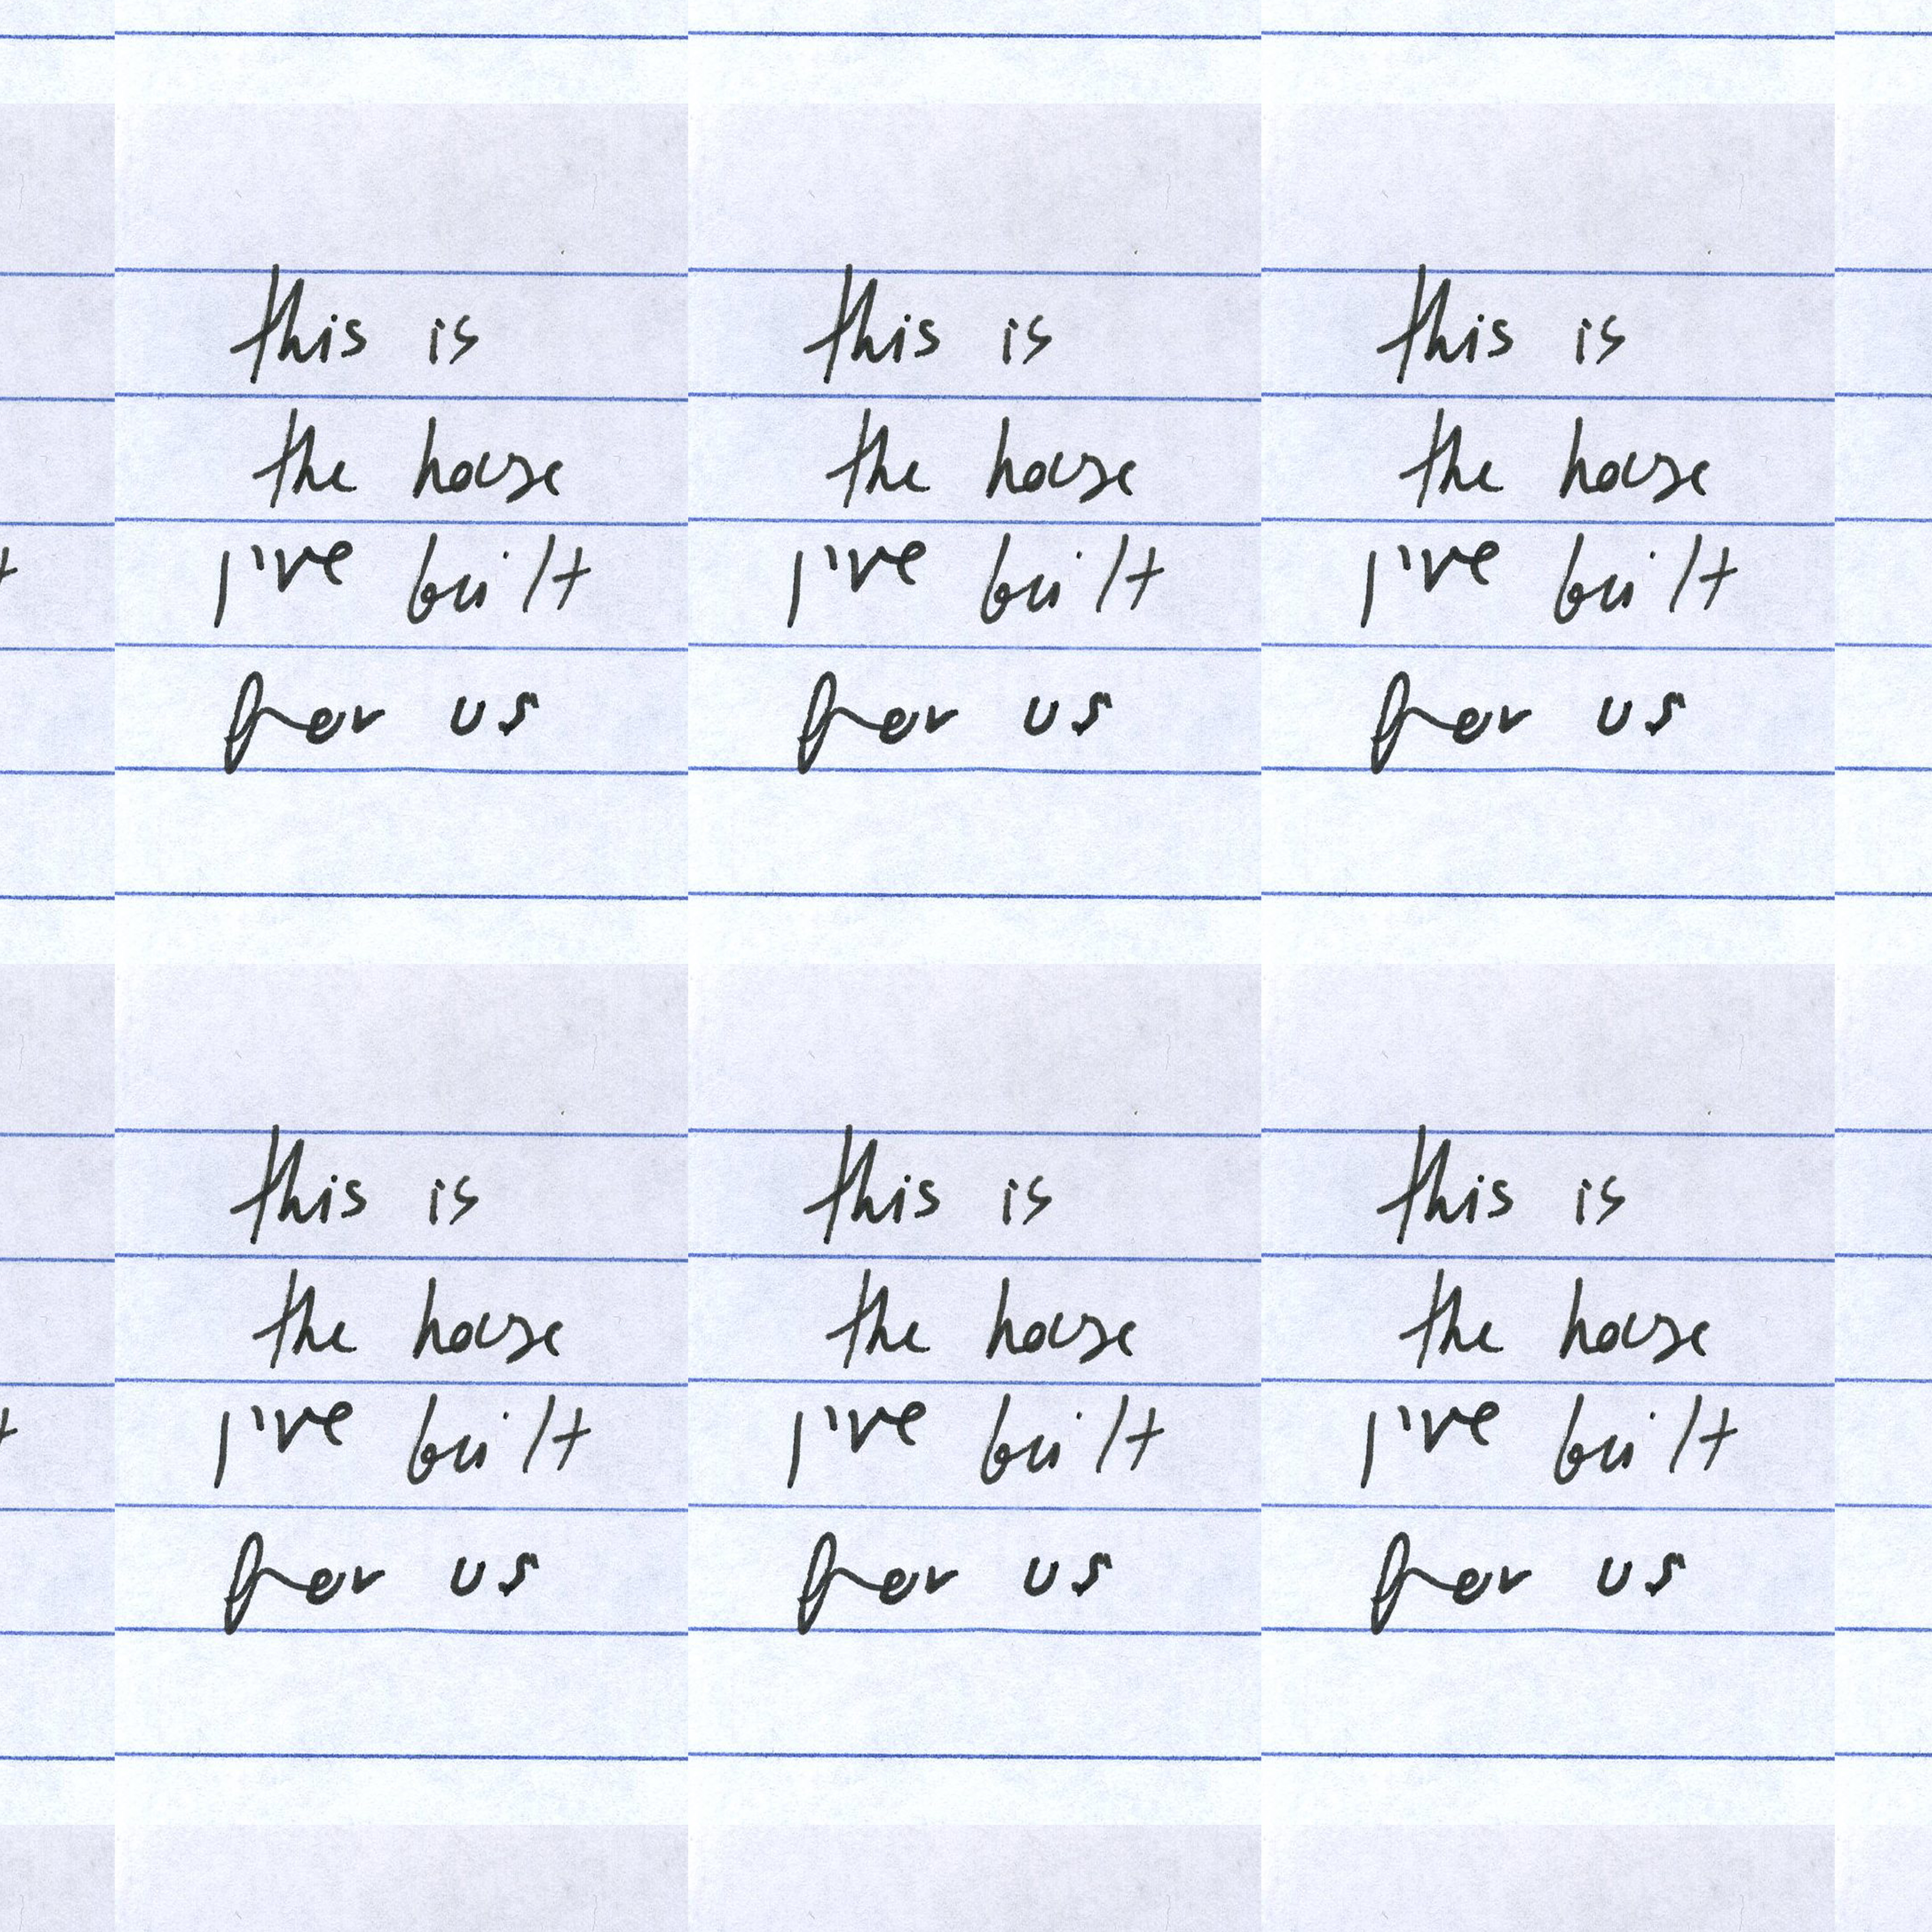 this is
the house
I've built
for us
this is
the house
I've built
for us
this is
the house
I've built
for us
this is
the house
I've built
for us
this is
the house
I've built
for us
this is
the house
I've built
for us